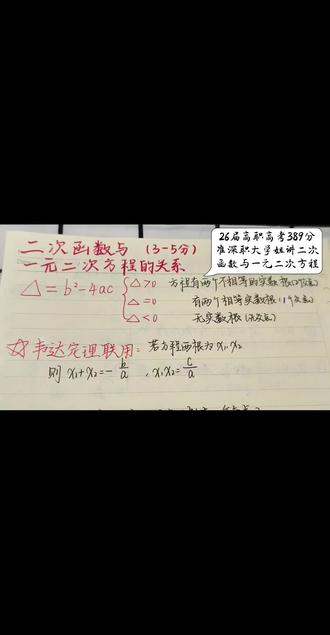 26届高职高考389分
准深职大学姐讲二次
函数与一元二次方程
二次函数与 (3-5分)
一元二次方程的关系
△=b²-4ac
△>0 方程有两个不相等的实数根(2个交点)
△=0 有两个相等实数根(1个交点)
△<0 无实数根(无交点)
☆韦达定理联用: 若方程两根为x₁,x₂
则 x₁+x₂=-b/a , x₁x₂=c/a